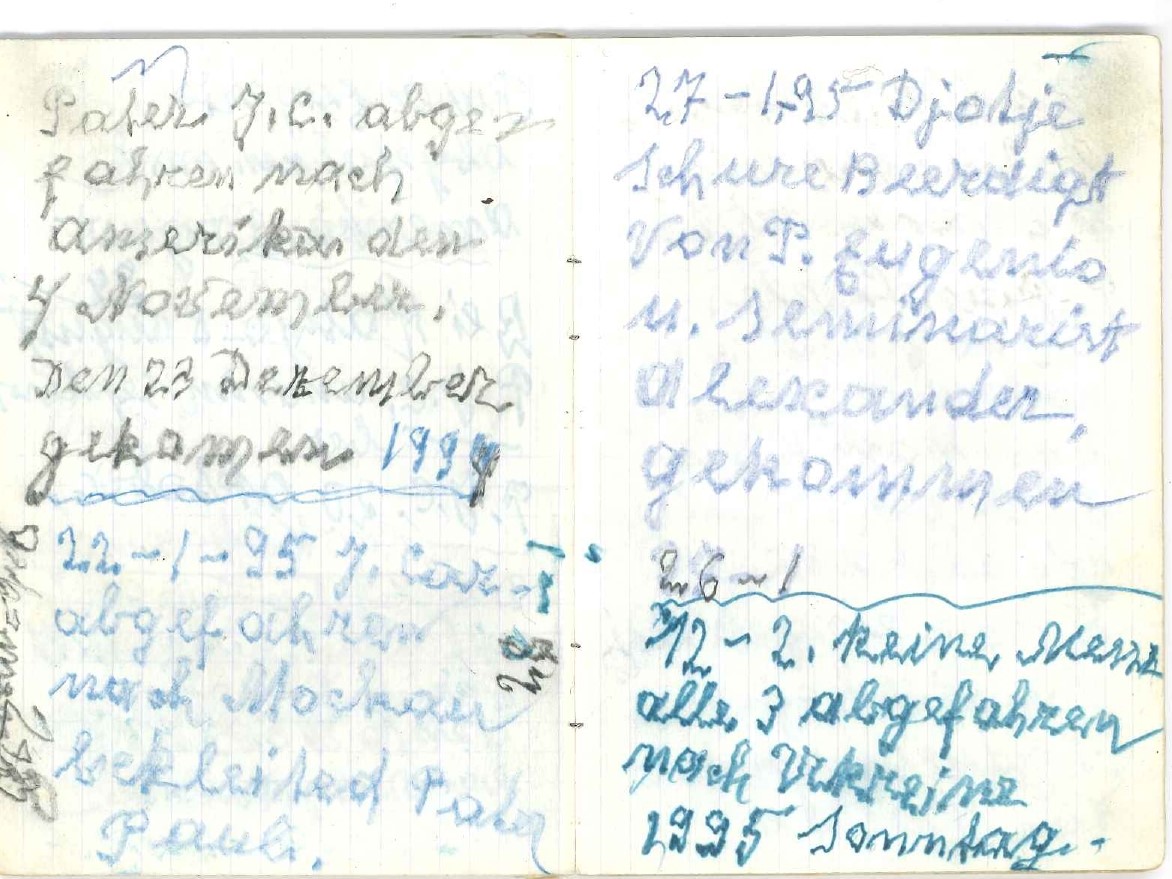 Pater J.C. abge-
fahren nach
Amerika den
4 November.
Den 23 Dezember
gekomen 1994
22-1-95 J. Cor.
abgefahren
nach Mockau
bekleited Pater
Paul.
28-1
27-1-95 Djotje
Schure Beerdigt
Von P. Eugenio
u. Seminarist
Alexander,
gekommen
26-1
12-2. keine Messe
alle 3 abgefahren
nach Ukreine
1995 Sonntag.-